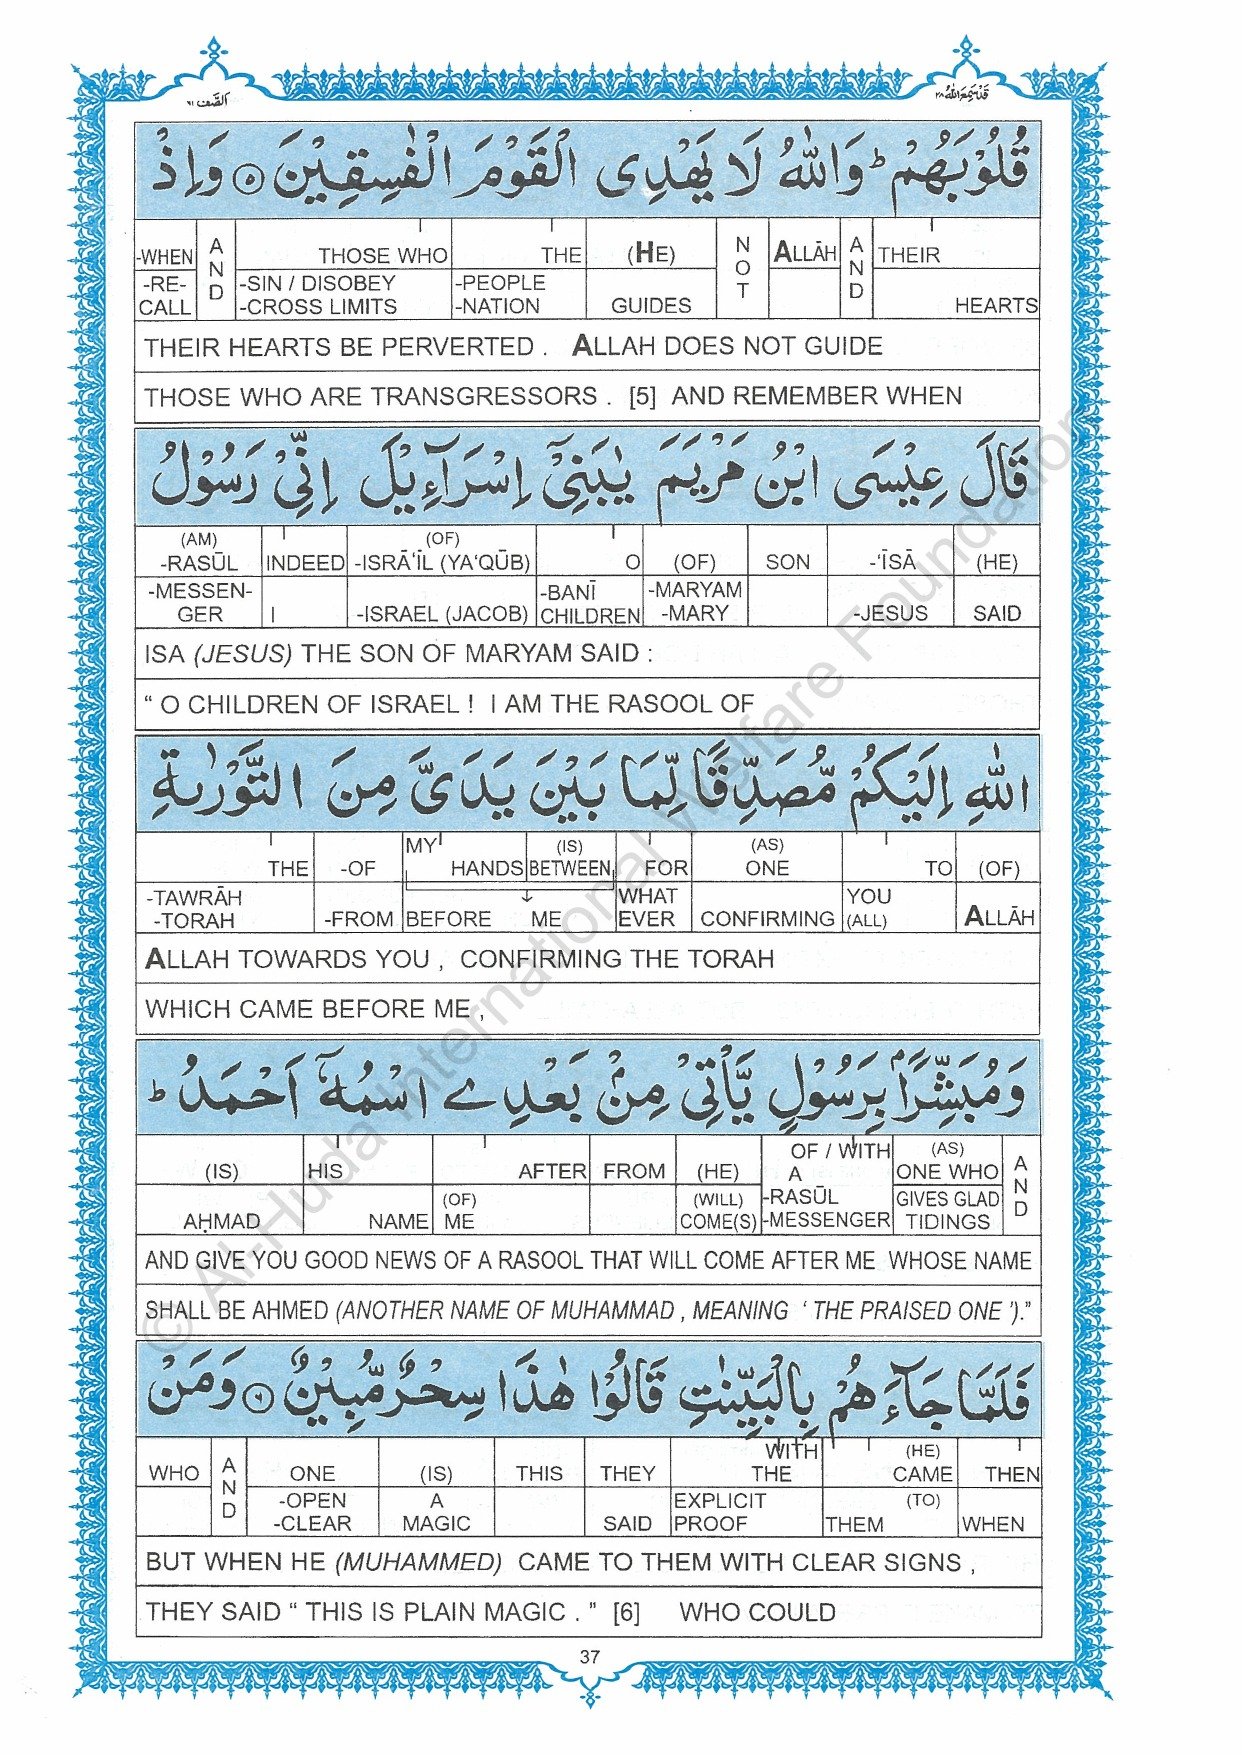 قَدْ سَمِعَ اللهُ ٢٨
اَلصَّف ٦١
قُلُوْبَهُمْ ؕ وَاللهُ لَا يَهْدِى الْقَوْمَ الْفٰسِقِيْنَ ۝۵ وَاِذْ
-WHEN AND THOSE WHO THE (HE) NOT ALLĀH AND THEIR
-RE-CALL -SIN / DISOBEY -CROSS LIMITS -PEOPLE -NATION GUIDES HEARTS
THEIR HEARTS BE PERVERTED . ALLAH DOES NOT GUIDE
THOSE WHO ARE TRANSGRESSORS . [5] AND REMEMBER WHEN
قَالَ عِيْسَى ابْنُ مَرْيَمَ يٰبَنِىْٓ اِسْرَآءِيْلَ اِنِّىْ رَسُوْلُ
(AM) -RASŪL INDEED (OF) -ISRĀ‘ĪL (YA‘QŪB) O (OF) SON -‘ĪSĀ (HE)
-MESSEN-GER I -ISRAEL (JACOB) -BANĪ CHILDREN -MARYAM -MARY -JESUS SAID
ISA (JESUS) THE SON OF MARYAM SAID :
“ O CHILDREN OF ISRAEL ! I AM THE RASOOL OF
اللهِ اِلَيْكُمْ مُّصَدِّقًا لِّمَا بَيْنَ يَدَىَّ مِنَ التَّوْرٰىةِ
THE -OF MY HANDS (IS) BETWEEN FOR (AS) ONE TO (OF)
-TAWRĀH -TORAH -FROM BEFORE ME WHAT EVER CONFIRMING YOU (ALL) ALLĀH
ALLAH TOWARDS YOU , CONFIRMING THE TORAH
WHICH CAME BEFORE ME ,
وَمُبَشِّرًۢا بِرَسُوْلٍ يَّاْتِىْ مِنْۢ بَعْدِے اسْمُهٗٓ اَحْمَدُ ؕ
(IS) HIS AFTER FROM (HE) OF / WITH A (AS) ONE WHO AND
AḤMAD NAME (OF) ME (WILL) COME(S) -RASŪL -MESSENGER GIVES GLAD TIDINGS
AND GIVE YOU GOOD NEWS OF A RASOOL THAT WILL COME AFTER ME WHOSE NAME
SHALL BE AHMED (ANOTHER NAME OF MUHAMMAD , MEANING ‘ THE PRAISED ONE ’).”
فَلَمَّا جَآءَهُمْ بِالْبَيِّنٰتِ قَالُوْا هٰذَا سِحْرٌ مُّبِيْنٌ ۝۶ وَمَنْ
WHO AND ONE (IS) THIS THEY WITH THE (HE) CAME THEN
-OPEN -CLEAR A MAGIC SAID EXPLICIT PROOF THEM (TO) WHEN
BUT WHEN HE (MUHAMMED) CAME TO THEM WITH CLEAR SIGNS ,
THEY SAID “ THIS IS PLAIN MAGIC . ” [6] WHO COULD
37
© Al-Huda International Welfare Foundation